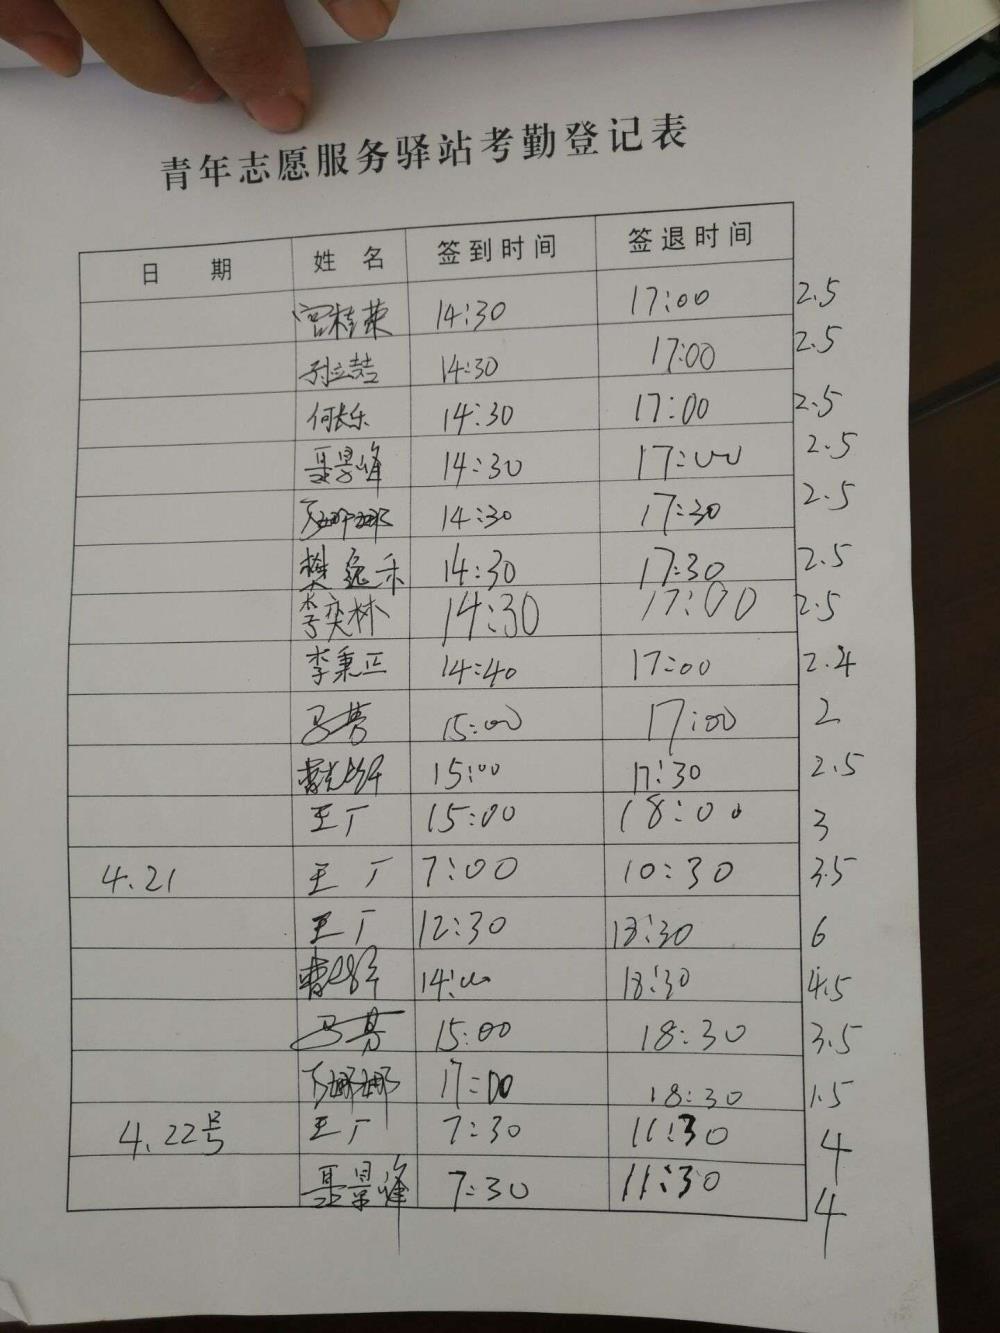 青年志愿服务驿站考勤登记表
日 期 姓 名 签到时间 签退时间
宫桂荣 14:30 17:00 2.5
孙立喆 14:30 17:00 2.5
何长乐 14:30 17:00 2.5
聂景峰 14:30 17:00 2.5
娜娜 14:30 17:30 2.5
樊兔禾 14:30 17:30 2.5
李奕林 14:30 17:00 2.5
李秉正 14:40 17:00 2.4
马芳 15:00 17:00 2
曹 15:00 17:30 2.5
王厂 15:00 18:00 3
4.21 王厂 7:00 10:30 3.5
王厂 12:30 18:30 6
曹 14:00 18:30 4.5
马芳 15:00 18:30 3.5
娜娜 17:00 18:30 1.5
4.22号 王厂 7:30 11:30 4
聂景峰 7:30 11:30 4